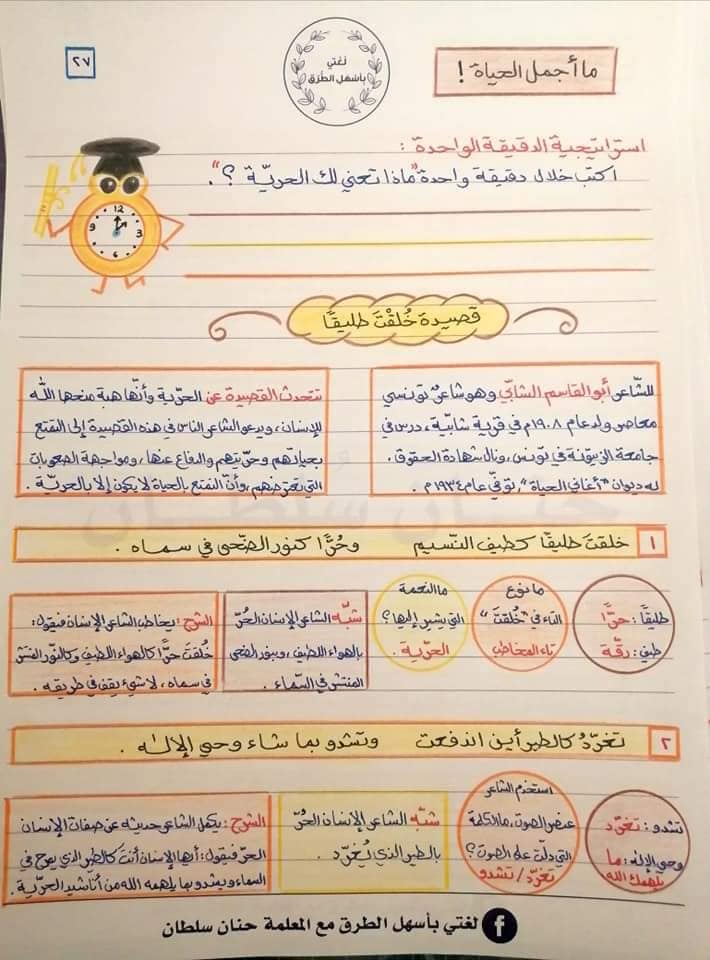 ما أجمل الحياة !
لغتي
بأسهل الطرق
٢٧
استراتيجية الدقيقة الواحدة :
اكتب خلال دقيقة واحدة "ماذا تعني لك الحريّة ؟".
12
3
6
9
قصيدة خُلقْتَ طليقًا
للشّاعر أبو القاسم الشابّي وهو شاعرٌ تونسي
معاصر ولد عام ١٩٠٨م في قرية شابيّة ، درس في
جامعة الزيتونة في تونس ، ونال شهادة الحقوق .
له ديوان "أغاني الحياة"، توفّي عام ١٩٣٤م .
تتحدث القصيدة عن الحرّية وأنّها هبة منحها اللّه
للإنسان ، ويدعو الشاعر الناس في هذه القصيدة إلى التمتع
بحياتهم وحرّيتهم والدفاع عنها ، ومواجهة الصعوبات
التي تعترضهم ، وأنّ التمتع بالحياة لا يكون إلا بالحريّة .
١ خلقتَ طليقًا كطيف النّسيم وحُرًّا كنور الضّحى في سماه .
طليقًا : حرًّا
طيف : رقّة
ما نوع
التاء في "خُلقتَ"
تاء المخاطب
ما النعمة
التي يشير إليها ؟
الحرّية .
شبّه الشاعر الإنسان الحُرّ
بالهواء اللطيف ، وبنور الضحى
المنتشر في السّماء .
الشرح : يخاطب الشاعر الإنسان فيقول :
خُلقتَ حرًّا كالهواء اللطيف وكالنّور المنتشر
في سماه ، لا شيء يقف في طريقه .
٢ تغرّدُ كالطير أين اندفعت وتشدو بما شاء وحي الإلٰه .
تشدو : تغرّد
وحي الإله : ما
يلهمك الله
استخدم الشاعر
عنصر الصوت ، ما الكلمة
التي دلّت على الصوت ؟
تغرّد / تشدو
شبّه الشاعر الإنسان الحُرّ
بالطير الذي يُغرّد .
الشرح : يكمل الشاعر حديثه عن صفات الإنسان
الحرّ فيقول : أيها الإنسان أنتَ كالطير الذي يمرح في
السماء ويشدو بما يلهمه الله من أناشيد الحرّية .
لغتي بأسهل الطرق مع المعلمة حنان سلطان